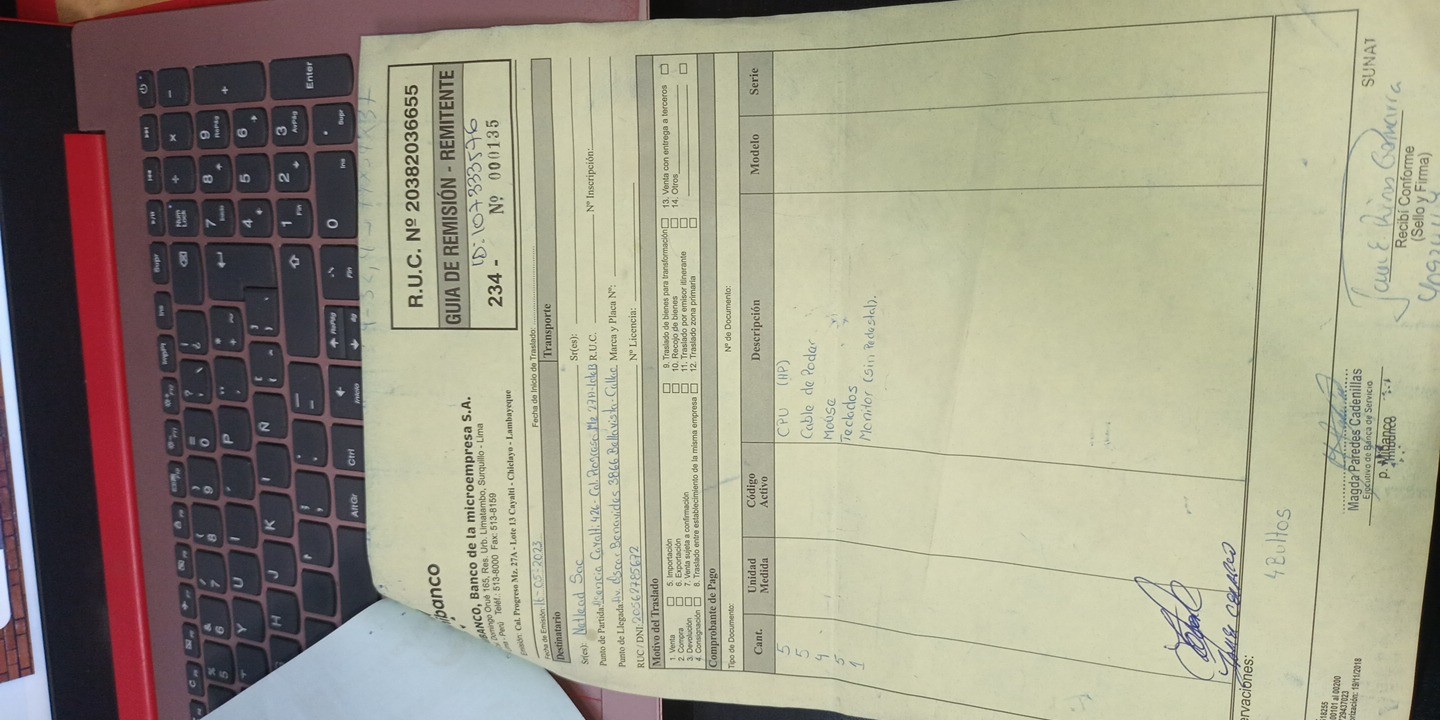 R.U.C. Nº 20382036655
GUIA DE REMISIÓN - REMITENTE
ID: 107333596
234 - Nº 000135
BANCO, Banco de la microempresa S.A.
Domingo Orué 165, Res. Urb. Limatambo, Surquillo - Lima
Perú Teléf.: 513-8000 Fax: 513-8159
Emisión: Cal. Progreso Mz. 27A - Lote 13 Cayalti - Chiclayo - Lambayeque
Fecha de Emisión: 16-05-2023 Fecha de Inicio de Traslado:
Destinatario Transporte
Sr(es): Netlead Sac Sr(es):
Punto de Partida: Agencia Cayalti 426 - Cal. Progreso Mz 27A-lote13 R.U.C. Nº Inscripción:
Punto de Llegada: Av. Oscar Benavides 3866 Bellavista-Callao Marca y Placa Nº:
RUC / DNI: 20567785672 Nº Licencia:
Motivo del Traslado
1. Venta 5. Importación 9. Traslado de bienes para transformación 13. Venta con entrega a terceros
2. Compra 6. Exportación 10. Recojo de bienes 14. Otros
3. Devolución 7. Venta sujeta a confirmación 11. Traslado por emisor itinerante
4. Consignación 8. Traslado entre establecimiento de la misma empresa 12. Traslado zona primaria
Comprobante de Pago
Tipo de Documento: Nº de Documento:
Cant. Unidad Medida Código Activo Descripción Modelo Serie
5 CPU (HP)
5 Cable de Poder
4 Mouse
5 Teclados
1 Monitor (sin Pedestal).
ervaciones: 4 Bultos
Magda Paredes Cadenillas
Ejecutivo de Banca de Servicio
p. Mibanco
Recibí Conforme
(Sello y Firma)
SUNAT
18255
00101 al 00200
29437023
orización: 19/11/2018
Enter
AltGr
Ctrl
Fin
Supr
Ins